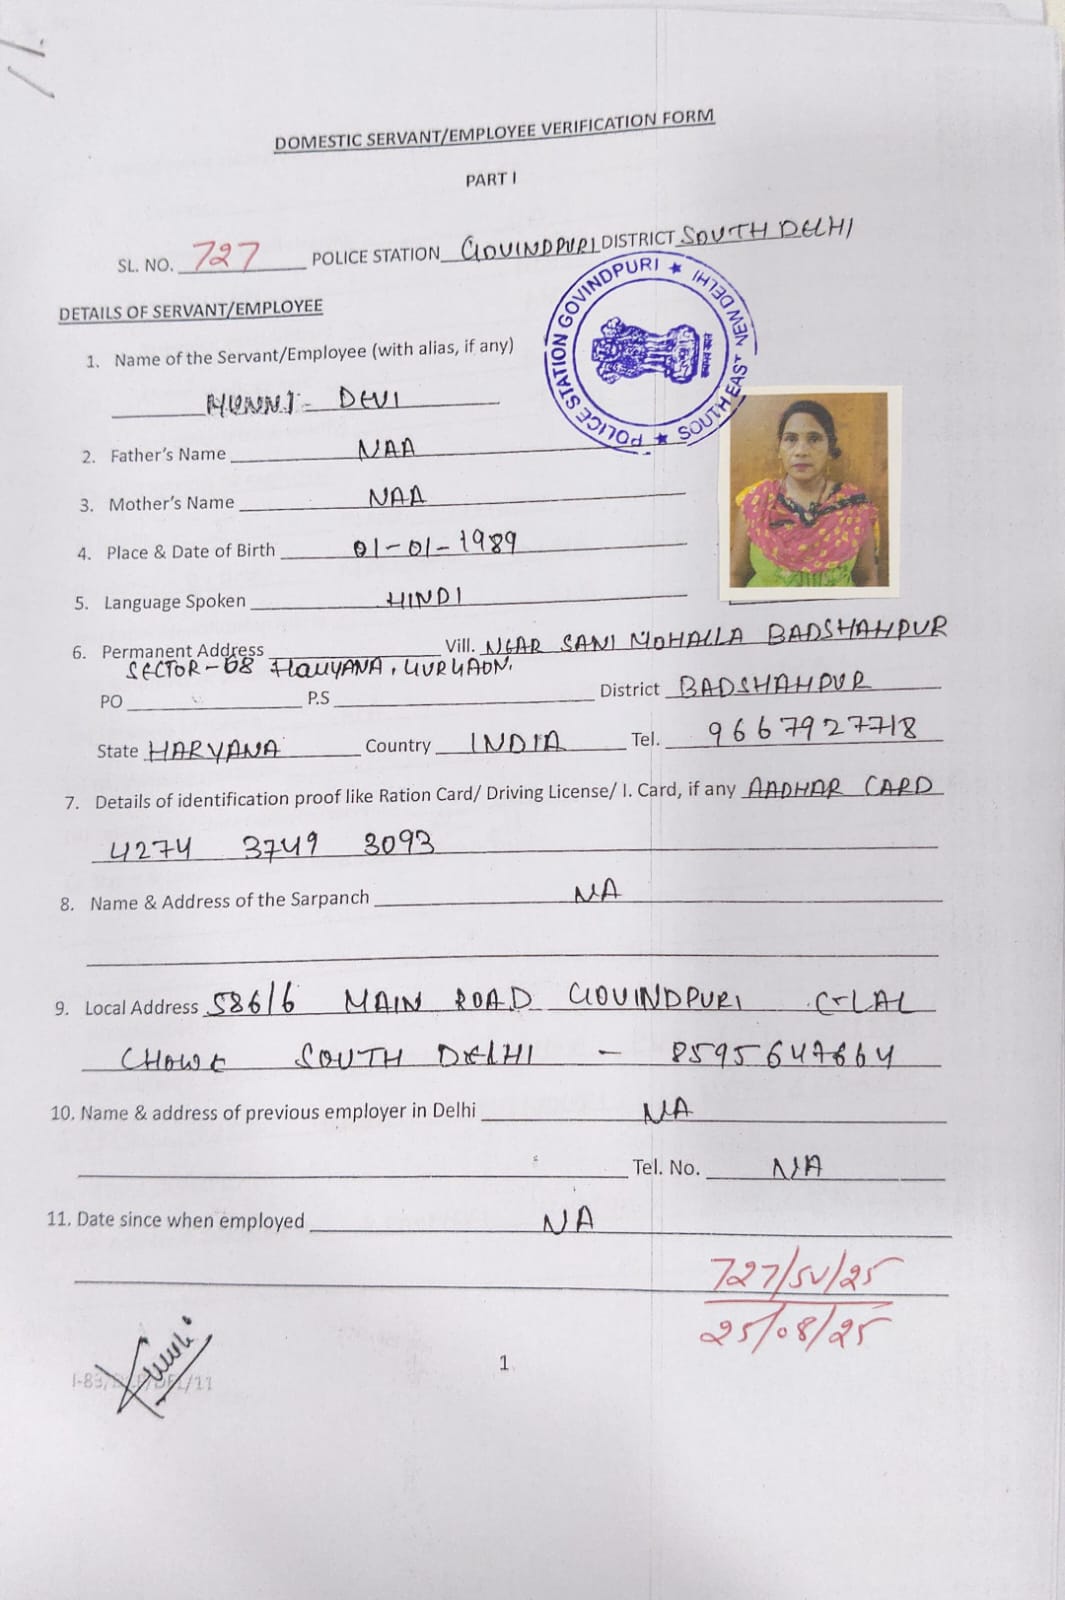 DOMESTIC SERVANT/EMPLOYEE VERIFICATION FORM
PART I
SL. NO. 727 POLICE STATION GOVINDPURI DISTRICT SOUTH DELHI
POLICE STATION GOVINDPURI ★ SOUTH EAST NEW DELHI ★
DETAILS OF SERVANT/EMPLOYEE
1. Name of the Servant/Employee (with alias, if any)
MUNNI - DEVI
2. Father's Name NAA
3. Mother's Name NAA
4. Place & Date of Birth 01-01-1989
5. Language Spoken HINDI
6. Permanent Address Vill. NEAR SANI MOHALLA BADSHAHPUR
SECTOR-68 HARYANA, GURGAON.
PO P.S District BADSHAHPUR
State HARYANA Country INDIA Tel. 9667927718
7. Details of identification proof like Ration Card/ Driving License/ I. Card, if any AADHAR CARD
4274 3749 3093
8. Name & Address of the Sarpanch NA
9. Local Address 586/6 MAIN ROAD GOVINDPURI C-LAL
CHOWK SOUTH DELHI - 8595647664
10. Name & address of previous employer in Delhi NA
Tel. No. NA
11. Date since when employed NA
727/SV/25
25/08/25
1